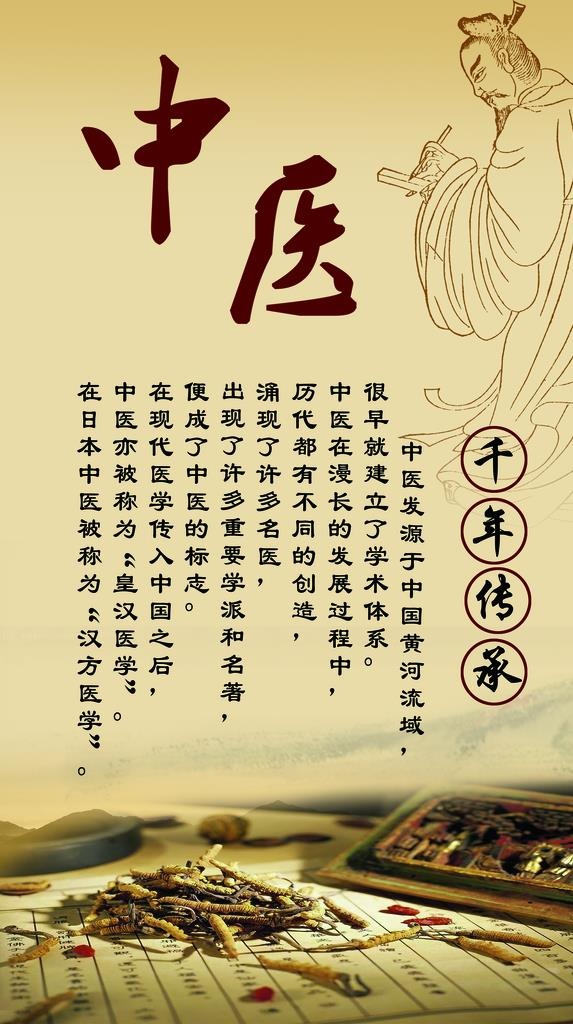 中医
千年传承
中医发源于中国黄河流域，
很早就建立了学术体系。
中医在漫长的发展过程中，
历代都有不同的创造，
涌现了许多名医，
出现了许多重要学派和名著，
便成了中医的标志。
在现代医学传入中国之后，
中医亦被称为“皇汉医学”。
在日本中医被称为“汉方医学”。